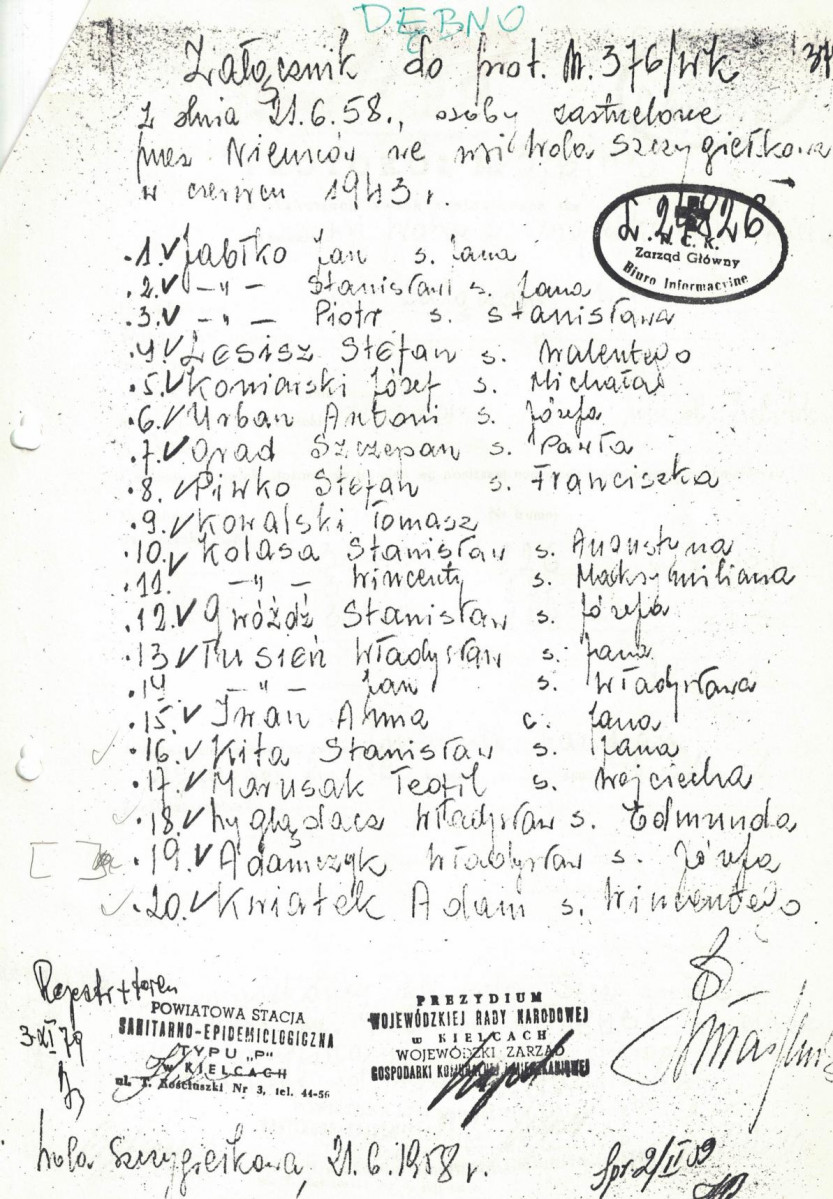 DĘBNO
Załącznik do prot. Nr. 376/wk
z dnia 21.6.58., osoby zastrzelone
przez Niemców we wsi Wola Szczygiełkowa
w czerwcu 1943 r.
Ł 24826
P.C.K.
Zarząd Główny
Biuro Informacyjne
1. Jabłko Jan s. Jana
2. — " — Stanisław s. Jana
3. — " — Piotr s. Stanisława
4. Lesisz Stefan s. Walentego
5. Koniarski Józef s. Michała
6. Urban Antoni s. Józefa
7. Grad Szczepan s. Pawła
8. Piwko Stefan s. Franciszka
9. Kowalski Tomasz
10. Kolasa Stanisław s. Augustyna
11. — " — Wincenty s. Maksymiliana
12. Gwóźdź Stanisław s. Józefa
13. Tusień Władysław s. Jana
14 — " — Jan s. Władysława
15. Iwan Anna c. Jana
16. Kita Stanisław s. Jana
17. Marusak Teofil s. Wojciecha
18. Wyglądacz Władysław s. Edmunda
19. Adamczyk Władysław s. Józefa
20. Kwiatek Adam s. Wincentego
Rejestr + teren
3 XI 79
POWIATOWA STACJA
SANITARNO-EPIDEMIOLOGICZNA
TYPU „P"
w KIELCACH
ul. T. Kościuszki Nr 3, tel. 44-56
PREZYDIUM
WOJEWÓDZKIEJ RADY NARODOWEJ
w KIELCACH
WOJEWÓDZKI ZARZĄD
GOSPODARKI KOMUNALNEJ I MIESZKANIOWEJ
Wola Szczygiełkowa, 21.6.1958 r.
Spr 2/II 09